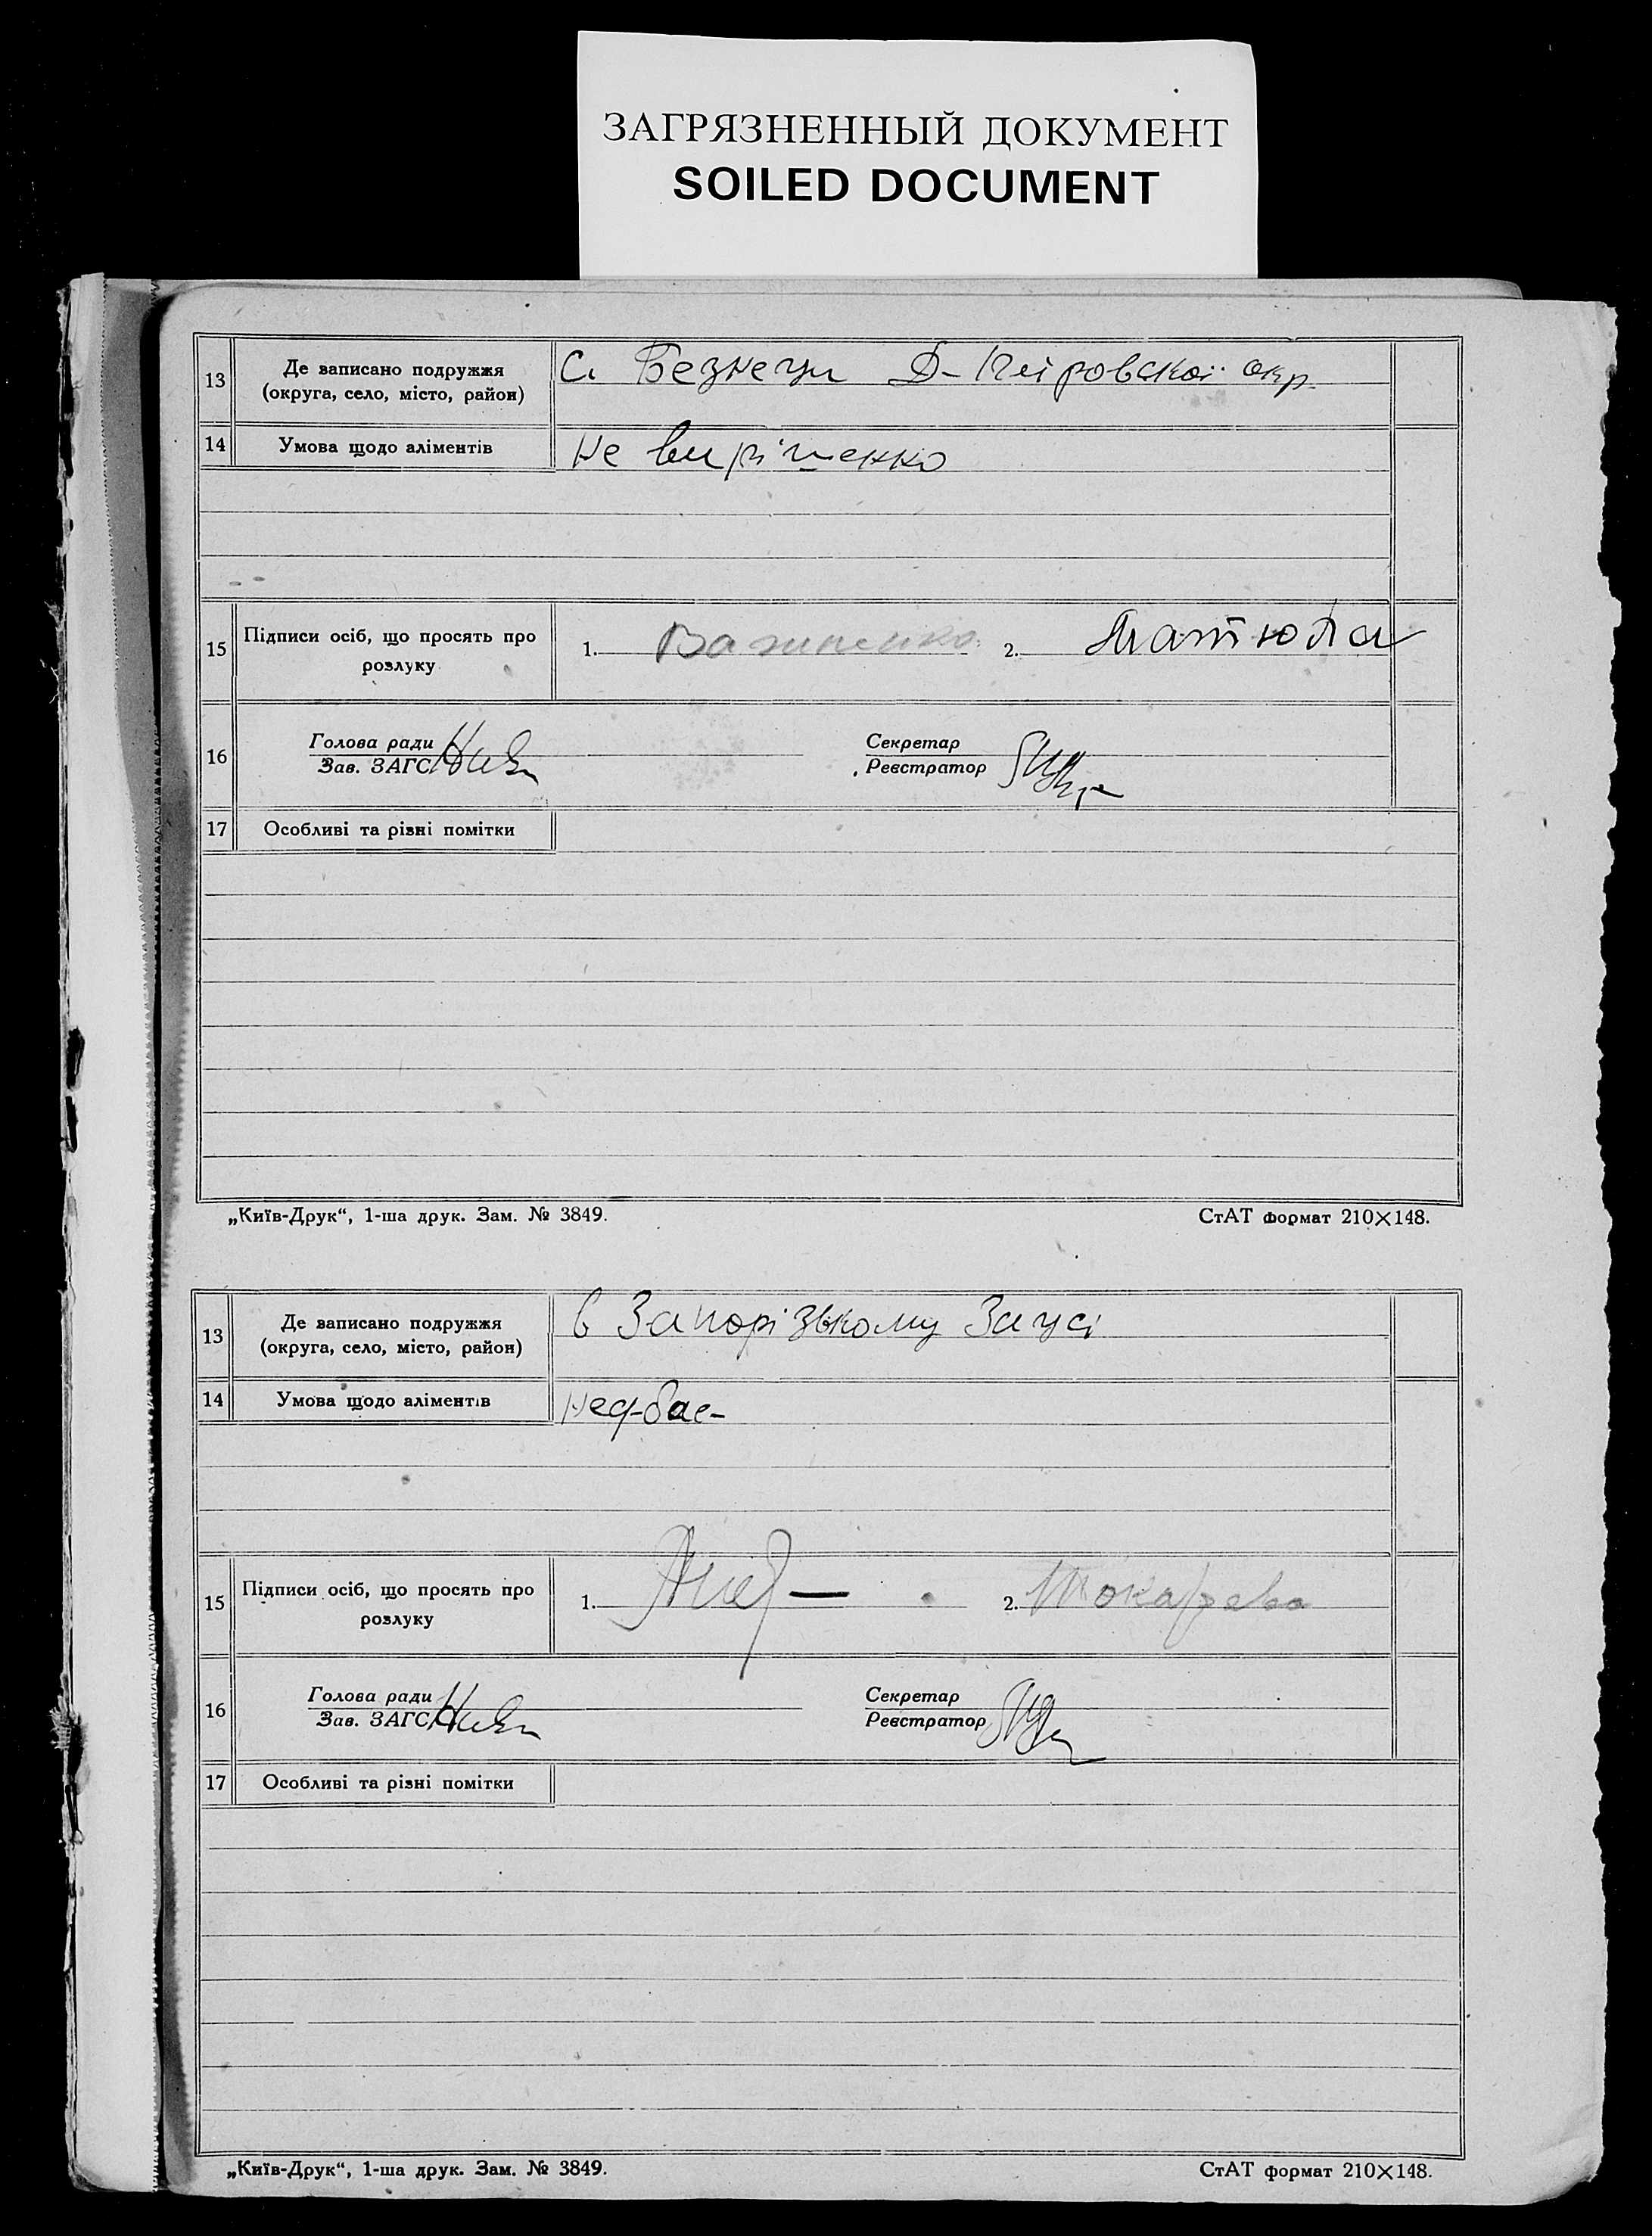 ЗАГРЯЗНЕННЫЙ ДОКУМЕНТ
SOILED DOCUMENT
13 Де записано подружжя (округа, село, місто, район) С. Д-Петровской окр.
14 Умова щодо аліментів Не вирішенно
15 Підписи осіб, що просять про розлуку 1. 2.
16 Голова ради Секретар
Зав. ЗАГС Реєстратор
17 Особливі та різні помітки
„Київ-Друк“, 1-ша друк. Зам. № 3849. СтАТ формат 210×148.
13 Де записано подружжя (округа, село, місто, район) в Запорізькому Загсі
14 Умова щодо аліментів
15 Підписи осіб, що просять про розлуку 1. 2. Токарева
16 Голова ради Секретар
Зав. ЗАГС Реєстратор
17 Особливі та різні помітки
„Київ-Друк“, 1-ша друк. Зам. № 3849. СтАТ формат 210×148.